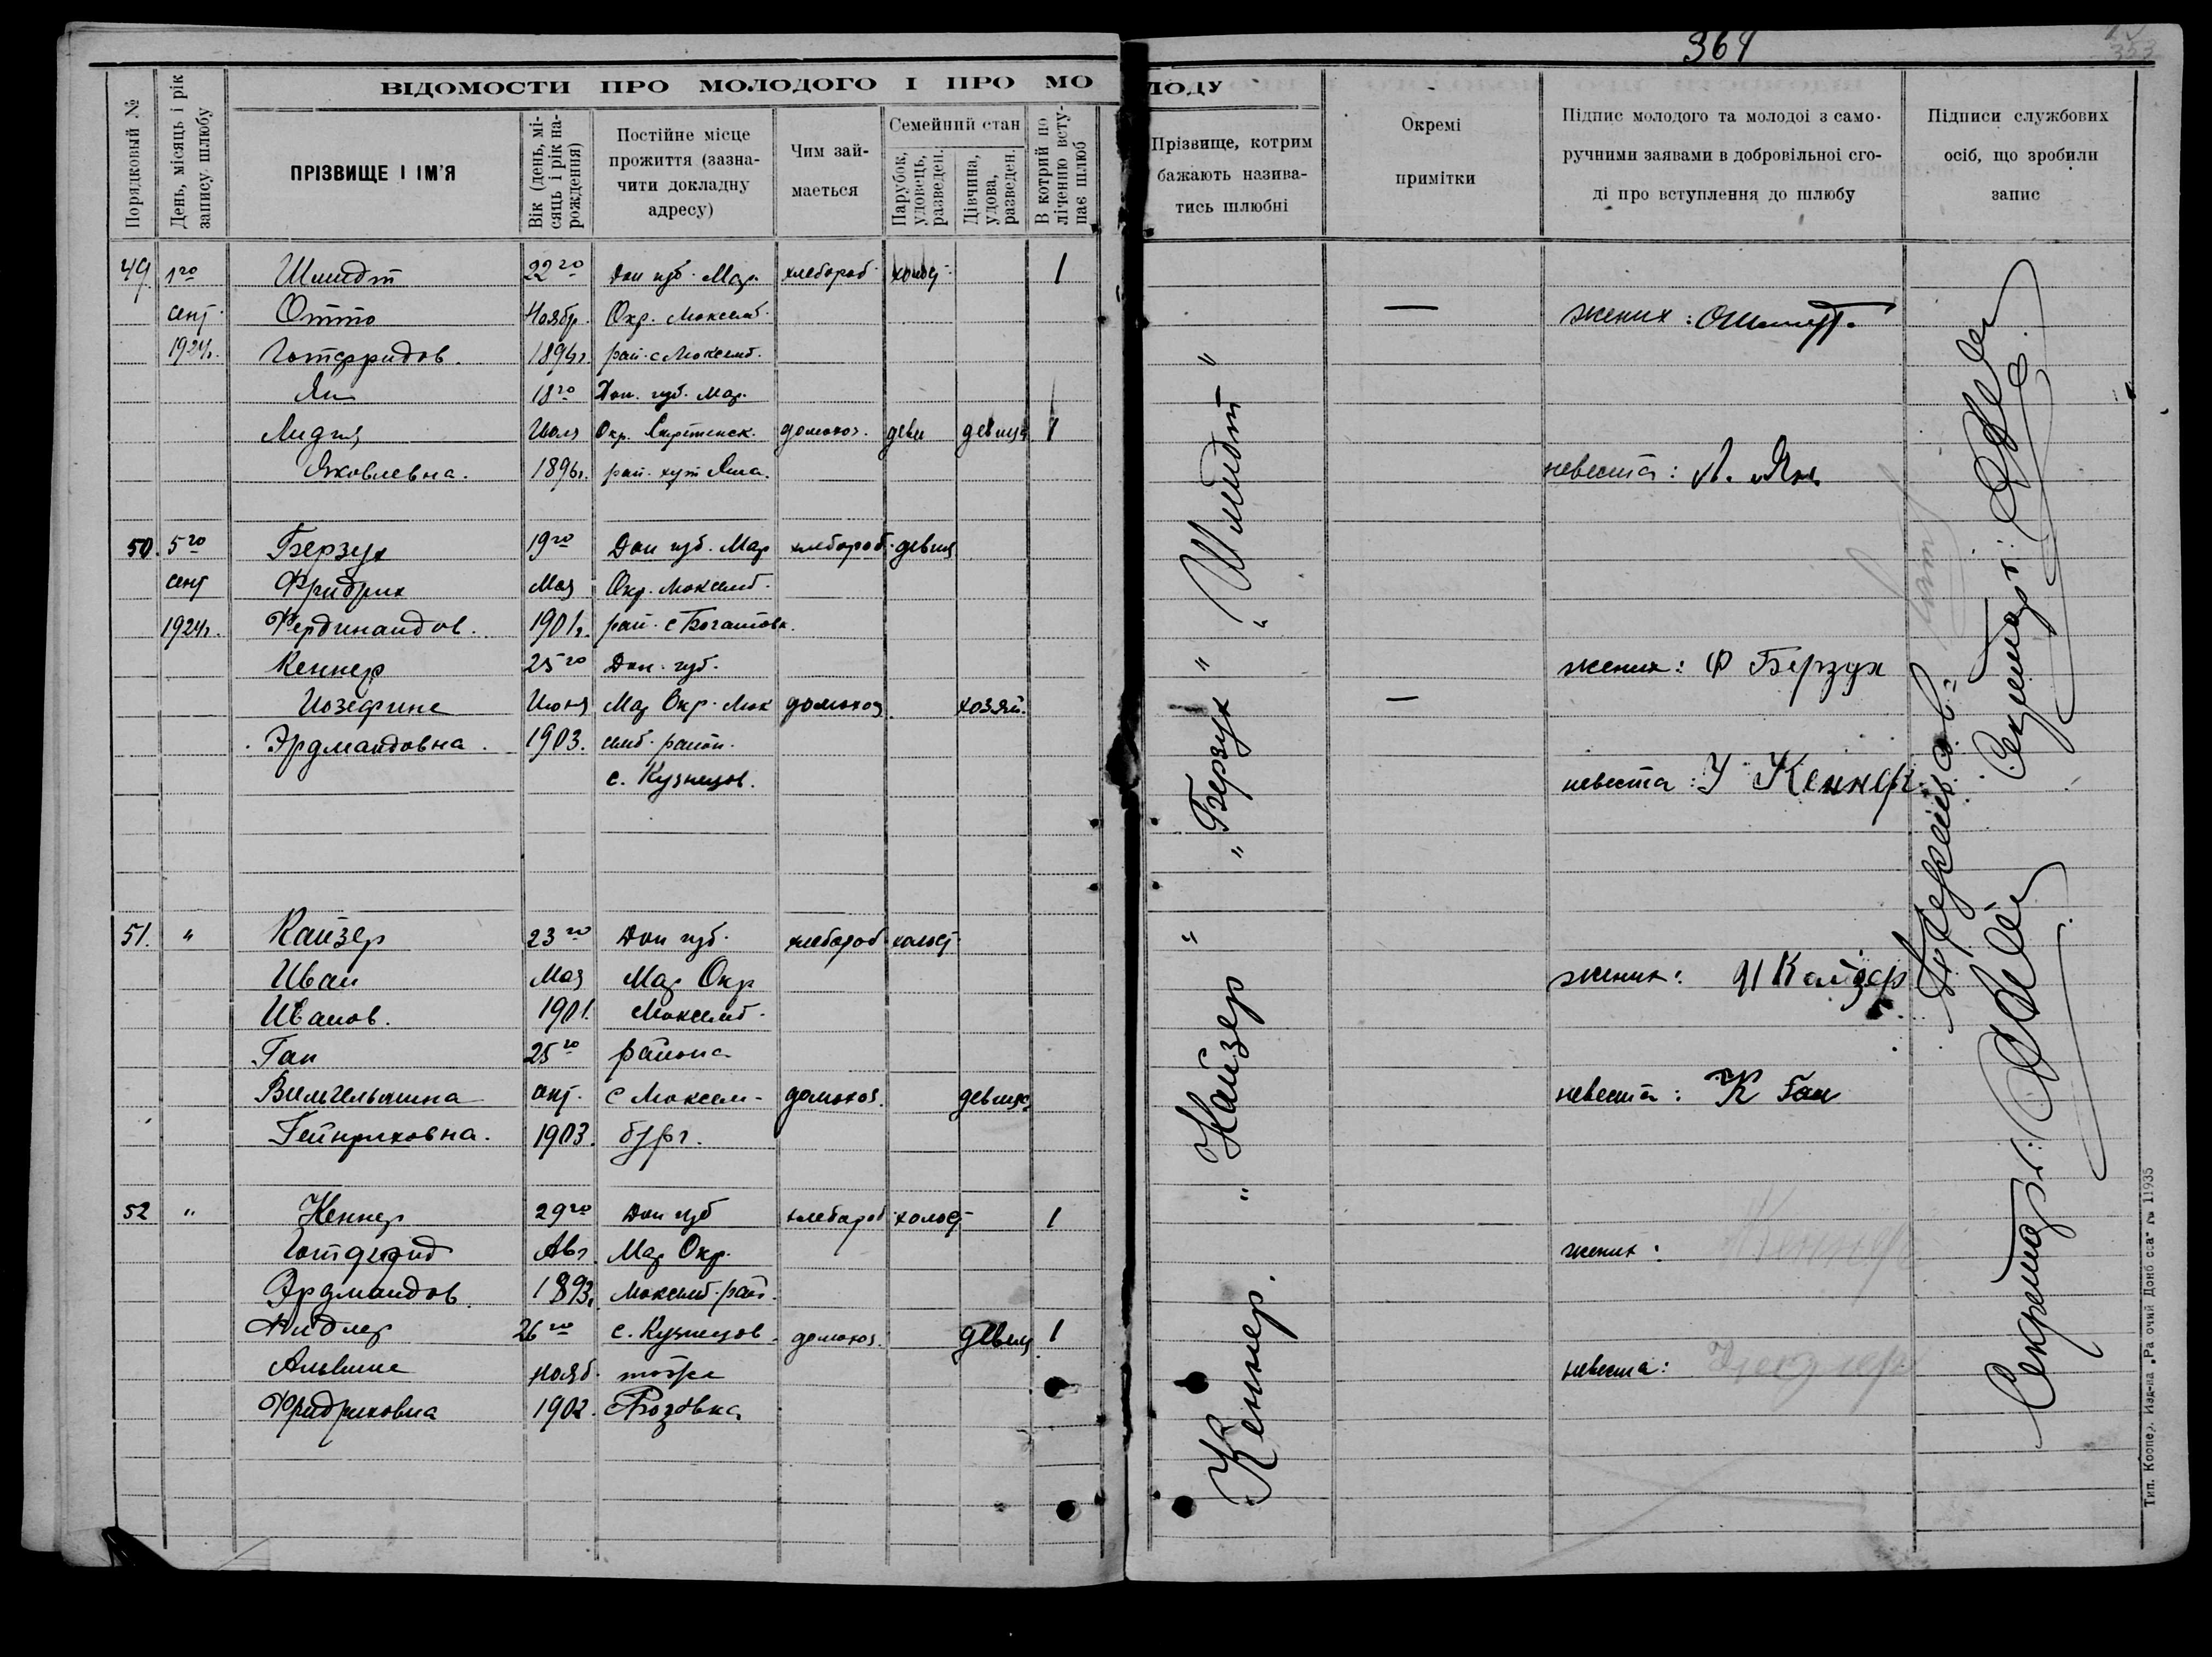 364
353
ВІДОМОСТИ ПРО МОЛОДОГО І ПРО МОЛОДУ
Порядковый №
День, місяць і рік запису шлюбу
ПРІЗВИЩЕ І ІМ'Я
Вік (день, місяць і рік народження)
Постійне місце прожиття (зазначити докладну адресу)
Чим займається
Семейний стан
Парубок, удовець, разведен.
Дівчина, удова, разведен.
В котрий по ліченню вступає шлюб
Прізвище, котрим бажають називатись шлюбні
Окремі примітки
Підпис молодого та молодоі з саморучними заявами в добровільноі сгоді про вступлення до шлюбу
Підписи службових осіб, що зробили запис
49 1го Шмидт 22го Дон губ. Мар. хлебороб. холост. 1
сент. Отто Ноябр. Окр. Люксемб. — жених:
1924г. Готфридов. 1894г. рай. с Люксемб.
Ян 18го Дон. губ. Мар.
Лидия Июля Окр. домохоз. девиц 1
Яковлевна. 1896г. рай. хут Яна. невеста: Л. Ян
" Шмидт "
50. 5го Берзух 19го Дон губ. Мар хлебороб.
сент Фридрих Мая Окр. Люксемб.
1924г. Фердинандов. 1901г. рай. с Богатовк.
Кеннер 25го Дон. губ. жених: Ф Берзух
Иозефине Июня Мар Окр. Люк домохоз —
Эрдмандовна. 1903. семб. район.
с. Кузнецов. невеста: Кеннер
" Берзух "
51. " Кайзер 23го Дон губ. хлебороб. холост.
Иван Мая Мар Окр жених: И Кайзер
Иванов. 1901. Люксемб.
Ган 25го района
Вильгельмина окт. с Люксем- домохоз. девица невеста: К Ган
Гейнриховна. 1903. бург.
" Кайзер "
52 " Кеннер 29го Дон губ хлебороб холост 1
Готфрид Авг. Мар Окр. жених: Кеннер
Эрдмандов. 1893г. Люксемб. рай.
26го с. Кузнецов- домохоз. девиц 1
Альвине нояб. невеста:
Фридриховна 1902.
Кеннер.
Секретарь:
Секретарь:
Тип. Коопер. Изд-ва „Рабочий Донбасса" № 11935